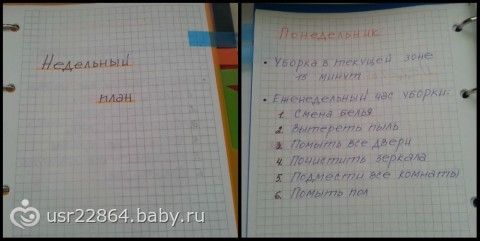 Недельный
план
Понедельник
• Уборка в текущей зоне
15 минут
• Еженедельный час уборки:
1. Смена белья
2. Вытереть пыль
3. Помыть все двери
4. Почистить зеркала
5. Подмести все комнаты
6. Помыть пол
usr22864.baby.ru